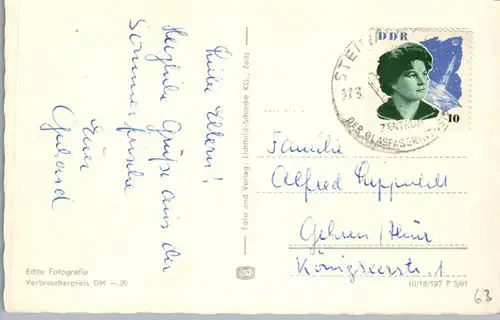 Liebe Eltern!
Herzliche Grüße aus der
Sommerfrische
Euer
Gerhard
Echte Fotografie
Verbraucherpreis DM —.20
Foto und Verlag: Lichtbild-Schincke KG., Zeitz
DDR
10
STEIN
ZENTRUM
DER GLASFASER
Familie
Alfred
Gehren/Thür
Königseerstr. 1
III/18/197 P 3/61
63